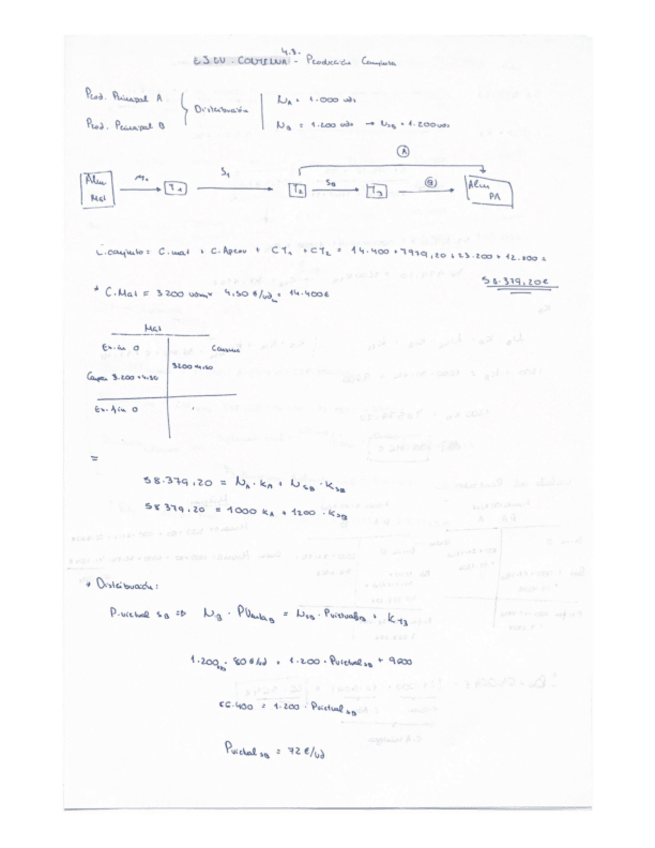 4.3.
EJEM. COLMENA - Producción Conjunta
Prod. Principal A
Prod. Principal B
Distribución
NA = 1.000 uds
NB = 1.200 uds → NSB = 1.200 uds
A
Alm Mat
M0
T1
S1
T2
SB
T3
B
Alm PA
C. conjunto = C. mat + C. Aprov + CT1 + CT2 = 14.400 + 7979,20 + 23.200 + 12.800 =
58.379,20€
* C. Mat = 3200 × 4.50 €/ud = 14.400€
Mat
Ex. in 0
Consumo
3200 × 4.50
Compra 3.200 × 4.50
Ex. fin 0
=
58.379,20 = NA · KA + NSB · KSB
58.379,20 = 1000 KA + 1200 · KSB
* Distribución:
P. virtual SB ⇒ NB · PVentaB = NSB · PvirtualSB + KT3
1.200 · 80 €/ud = 1.200 · PvirtualSB + 9600
86.400 = 1.200 · PvirtualSB
PvirtualSB = 72 €/ud